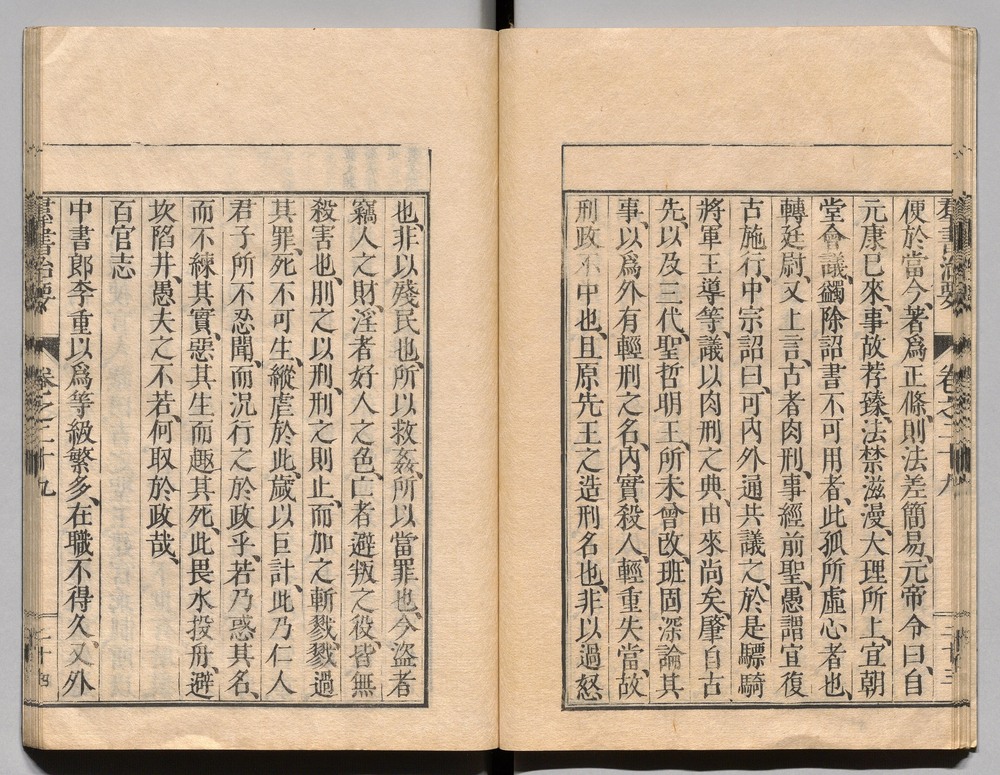 羣書治要
卷之二十九
二十三
便於當今、著爲正條、則法差簡易、元帝令曰、自
元康已來、事故荐臻、法禁滋漫、大理所上、宜朝
堂會議、蠲除詔書不可用者、此孤所虛心者也、
轉廷尉、又上言、古者肉刑、事經前聖、愚謂宜復
古施行、中宗詔曰、可內外通共議之、於是驃騎
將軍王導等、議以肉刑之典、由來尚矣、肇自古
先、以及三代、聖哲明王、所未曾改、班固深論其
事、以爲外有輕刑之名、內實殺人、輕重失當、故
刑政不中也、且原先王之造刑名也、非以過怒
也、非以殘民也、所以救姦、所以當罪也、今盜者
竊人之財、淫者好人之色、亡者避叛之役、皆無
殺害也、刖之以刑、刑之則止、而加之斬戮、戮過
其罪、死不可生、縱虐於此、歲以巨計、此乃仁人
君子所不忍聞、而況行之於政乎、若乃惑其名、
而不練其實、惡其生而趣其死、此畏水投舟、避
坎陷井、愚夫之不若、何取於政哉、
百官志
中書郎李重以爲等級繁多、在職不得久、又外
羣書治要
卷之二十九
二十四